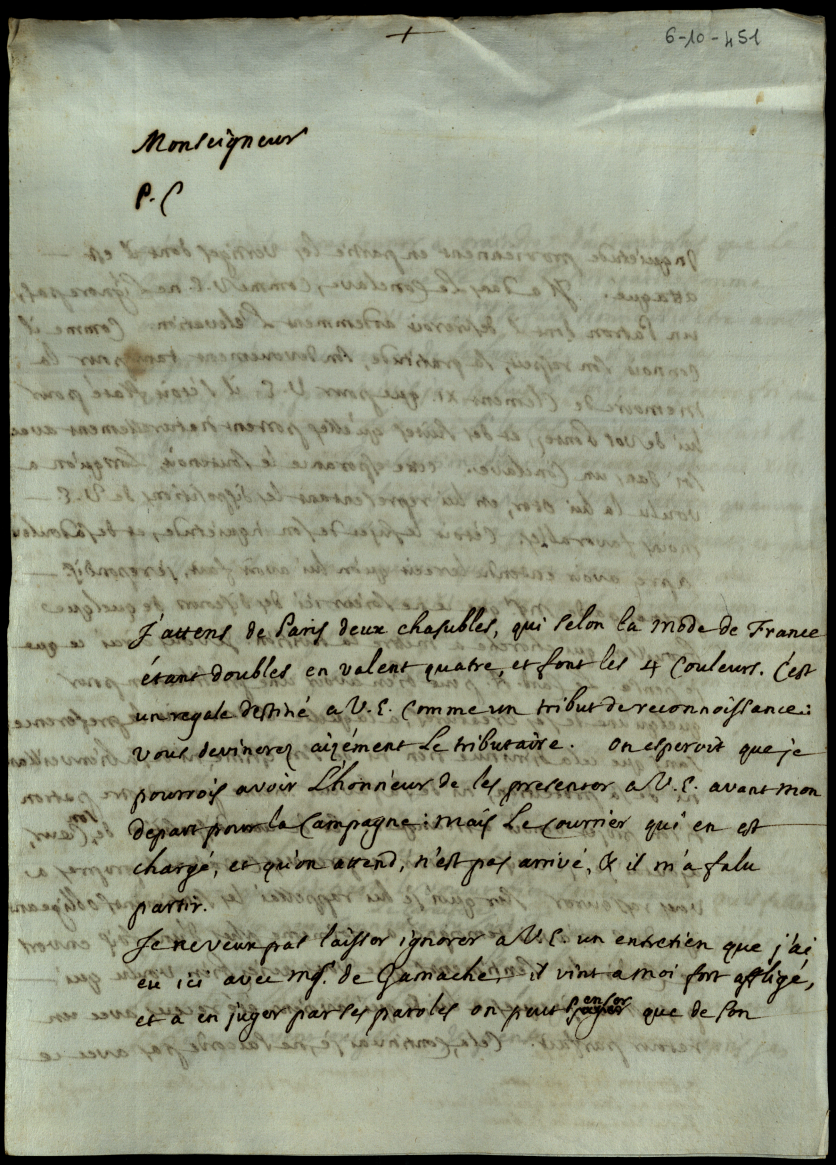 6-10-451
Monseigneur
P. C
J'attens de Paris deux chasubles, qui selon la mode de France
étant doubles en valent quatre, et font les 4 couleurs. c'est
un regale destiné a V. E. comme un tribut de reconnoissance:
vous devinerez aizément le tributaire. on esperoit que je
pourrois avoir L'honneur de les presenter a V. E. avant mon
depart pour la Campagne: mais Le courrier qui en est
chargé, et qu'on attend, n'est pas arrivé, & il m'a falu
partir.
Je ne veux pas laisser ignorer a V. E. un entretien que j'ai
eu ici avec Mgr. de Gamaches. il vint a moi fort affligé,
et a en juger par ses paroles on peut penser que de son